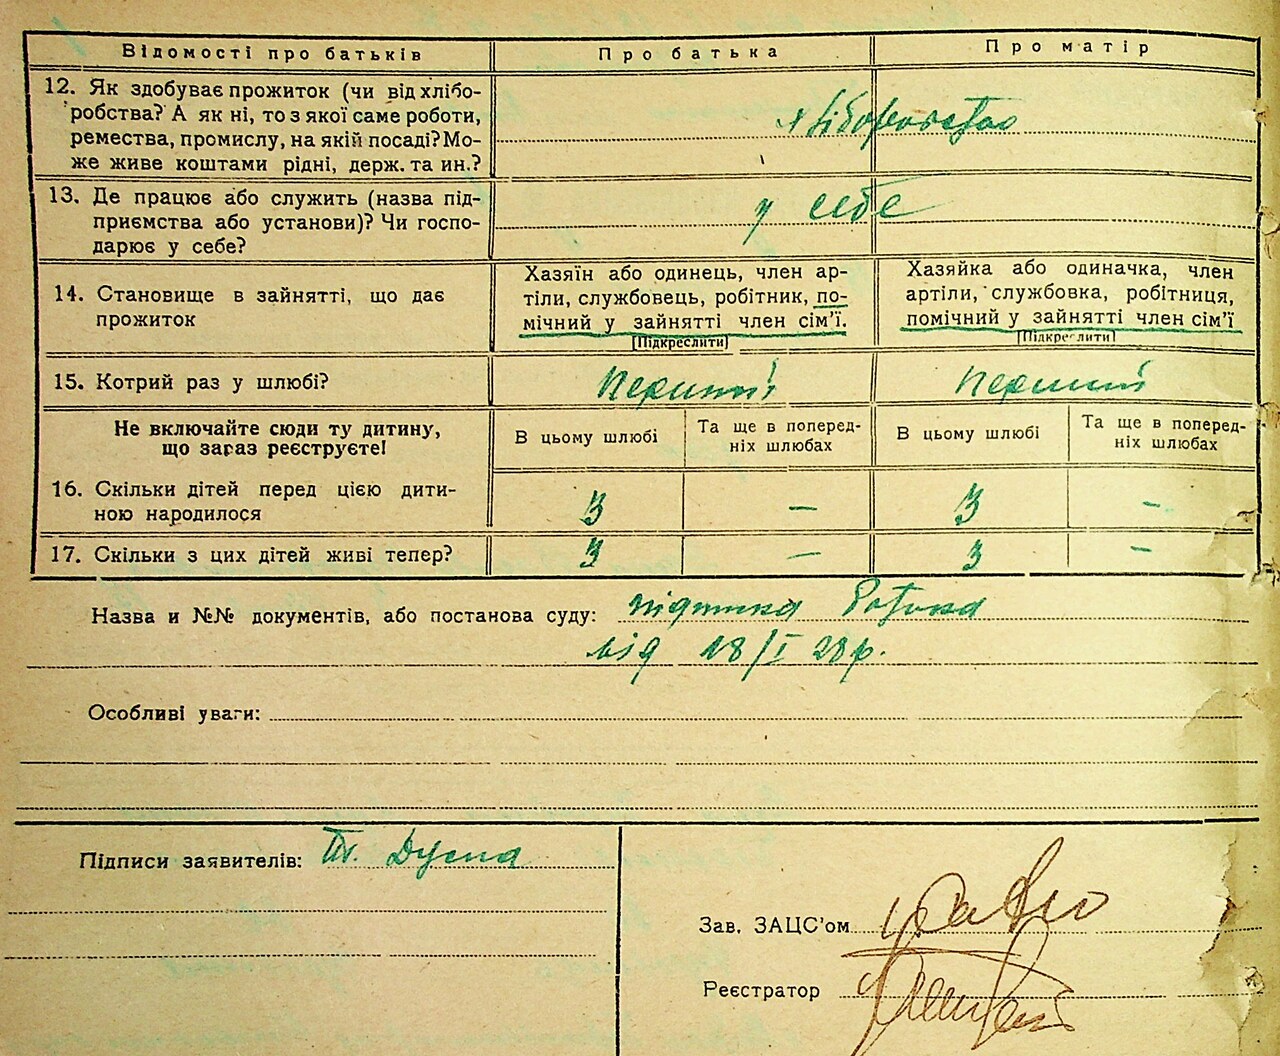 Відомості про батьків
Про батька
Про матір
12. Як здобуває прожиток (чи від хлібо-
робства? А як ні, то з якої саме роботи,
ремества, промислу, на якій посаді? Мо-
же живе коштами рідні, держ. та ин.?
хліборобство
13. Де працює або служить (назва під-
приємства або установи)? Чи госпо-
дарює у себе?
у себе
14. Становище в зайнятті, що дає
прожиток
Хазяїн або одинець, член ар-
тіли, службовець, робітник, по-
мічний у зайнятті член сім'ї.
[Підкреслити]
Хазяйка або одиначка, член
артіли, службовка, робітниця,
помічний у зайнятті член сім'ї
[Підкреслити]
15. Котрий раз у шлюбі?
перший
перший
Не включайте сюди ту дитину,
що зараз реєструєте!
В цьому шлюбі
Та ще в поперед-
ніх шлюбах
В цьому шлюбі
Та ще в поперед-
ніх шлюбах
16. Скільки дітей перед цією дити-
ною народилося
3
—
3
—
17. Скільки з цих дітей живі тепер?
3
—
3
—
Назва и №№ документів, або постанова суду:
від 18/I 28р.
Особливі уваги:
Підписи заявителів:
Зав. ЗАЦС'ом
Реєстратор